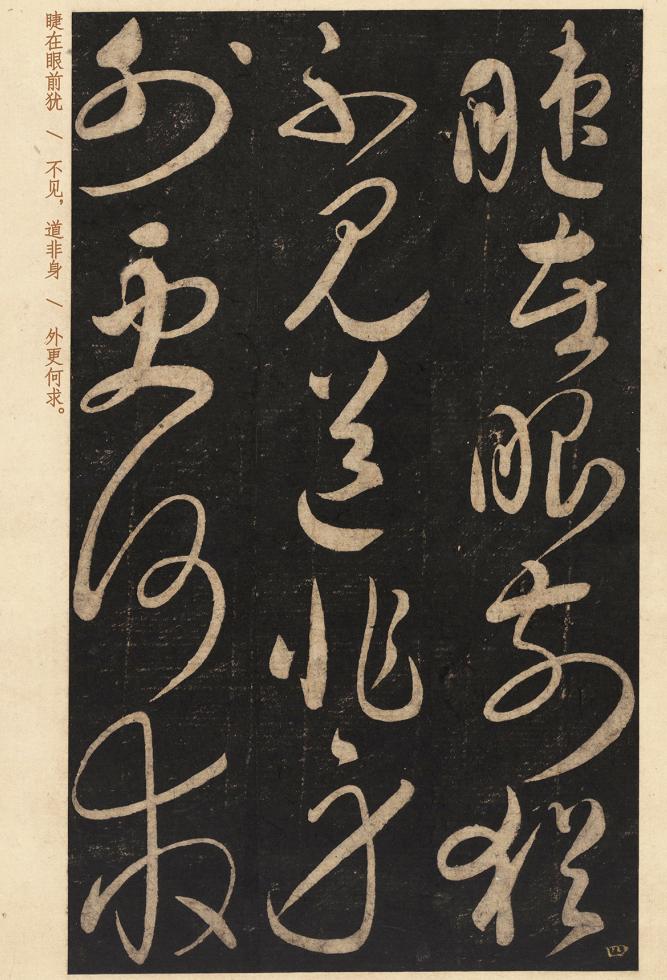 睫在眼前犹
不见道非身
外更何求
睫在眼前犹 \ 不见，道非身 \ 外更何求。